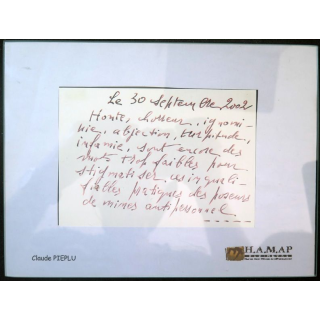 Le 30 Septembre 2002
Honte, horreur, ignomi-
nie, abjection, turpitude,
infamie, sont encore des
mots trop faibles pour
stigmatiser ces inquali-
fiables pratiques des poseurs
de mines antipersonnel.
Claude PIEPLU
H.A.M.AP